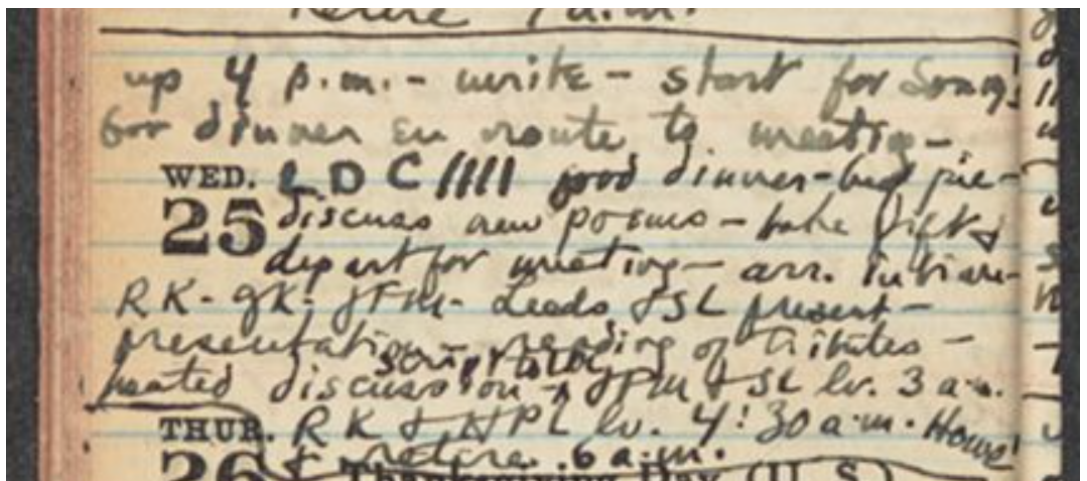 Retire a.m.
up 4 p.m. - write - start for Sonny's
for dinner en route to meeting -
WED. LDC //// good dinner - pie -
25 discuss new poems - take gift &
depart for meeting - arr. in time -
RK - GK - JFM - Leeds & SL present -
presentation - reading of tributes -
script talk
heated discussion - ^ JFM & SL lv. 3 a.m.
THUR. RK & HPL lv. 4:30 a.m. Home
& retire 6 a.m.
26 Thanksgiving Day (U.S.)